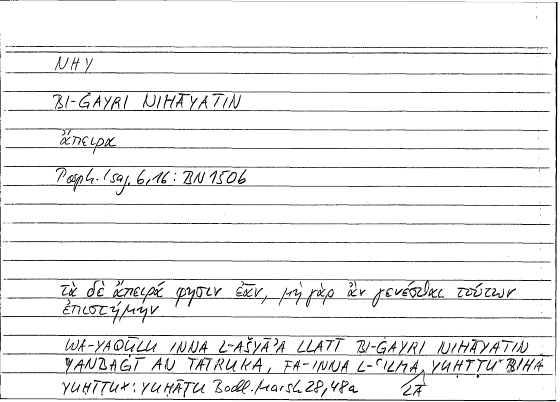 NHY
BI-ĠAYRI NIHĀYATIN
ἄπειρα
Porph. Isag. 6,16: BN 150b
τὰ δὲ ἄπειρά φησιν ἐᾶν, μὴ γὰρ ἂν γενέσθαι τούτων
ἐπιστήμην
WA-YAQŪLU INNA L-AŠYĀ'A LLATĪ BI-ĠAYRI NIHĀYATIN
YANBAĠĪ AN TATRUKA, FA-INNA L-ʿILMA, YUḤĪṬU* BIHA
LĀ
YUḤĪṬU*: YUHĀṬU Bodl. Marsh 28, 48a